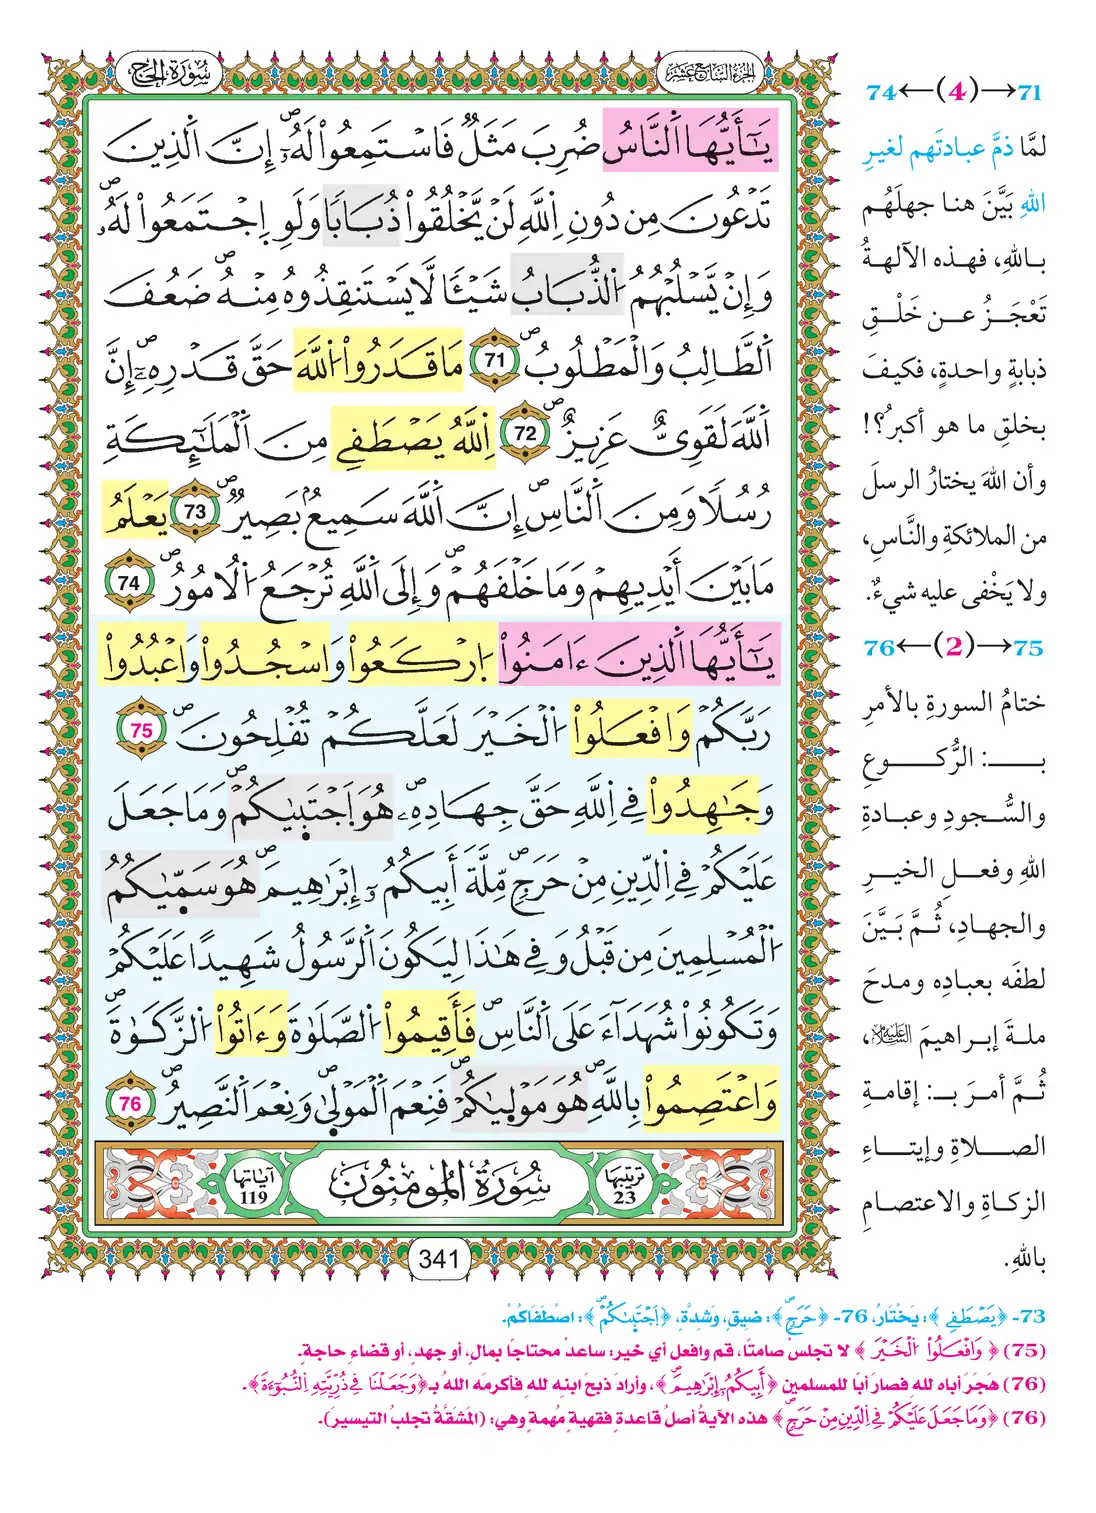 الجزء السابع عشر
سورة الحج
يَٰٓأَيُّهَا اَ۬لنَّاسُ ضُرِبَ مَثَلٞ فَاسْتَمِعُواْ لَهُۥٓۖ إِنَّ اَ۬لذِينَ
تَدْعُونَ مِن دُونِ اِ۬للَّهِ لَنْ يَّخْلُقُواْ ذُبَابٗا وَلَوِ اِ۪جْتَمَعُواْ لَهُۥۖ
وَإِنْ يَّسْلُبْهُمُ اُ۬لذُّبَابُ شَيْـٔٗا لَّا يَسْتَنقِذُوهُ مِنْهُۖ ضَعُفَ
اَ۬لطَّالِبُ وَالْمَطْلُوبُۖ 71 مَا قَدَرُواْ اُ۬للَّهَ حَقَّ قَدْرِهِۦٓۖ إِنَّ
اَ۬للَّهَ لَقَوِيٌّ عَزِيزٌۖ 72 اِ۬للَّهُ يَصْطَفِے مِنَ اَ۬لْمَلَٰٓئِكَةِ
رُسُلٗا وَمِنَ اَ۬لنَّاسِۖ إِنَّ اَ۬للَّهَ سَمِيعُۢ بَصِيرٞۖ 73 يَعْلَمُ
مَا بَيْنَ أَيْدِيهِمْ وَمَا خَلْفَهُمْۖ وَإِلَى اَ۬للَّهِ تُرْجَعُ اُ۬لُامُورُۖ 74
يَٰٓأَيُّهَا اَ۬لذِينَ ءَامَنُواْ اُ۪رْكَعُواْ وَاسْجُدُواْ وَاعْبُدُواْ
رَبَّكُمْ وَافْعَلُواْ اُ۬لْخَيْرَ لَعَلَّكُمْ تُفْلِحُونَۖ 75
وَجَٰهِدُواْ فِے اِ۬للَّهِ حَقَّ جِهَادِهِۦۖ هُوَ اَ۪جْتَبَيٰكُمْۖ وَمَا جَعَلَ
عَلَيْكُمْ فِے اِ۬لدِّينِ مِنْ حَرَجٖۖ مِّلَّةَ أَبِيكُمُۥٓ إِبْرَٰهِيمَۖ هُوَ سَمّ۪يٰكُمُ
اُ۬لْمُسْلِمِينَ مِن قَبْلُ وَفِے هَٰذَا لِيَكُونَ اَ۬لرَّسُولُ شَهِيداً عَلَيْكُمْ
وَتَكُونُواْ شُهَدَآءَ عَلَى اَ۬لنَّاسِۖ فَأَقِيمُواْ اُ۬لصَّلَوٰةَ وَءَاتُواْ اُ۬لزَّكَوٰةَۖ
وَاعْتَصِمُواْ بِاللَّهِ هُوَ مَوْل۪يٰكُمْۖ فَنِعْمَ اَ۬لْمَوْل۪يٰ وَنِعْمَ اَ۬لنَّصِيرُۖ 76
ترتيبها 23
سُورَةُ الْمُومِنُونَ
آياتها 119
341
71←(4)→74
لمَّا ذمَّ عبادتَهم لغيرِ
اللهِ بَيَّنَ هنا جهلَهُم
باللهِ، فهذه الآلهةُ
تَعْجَزُ عن خَلْقِ
ذبابةٍ واحدةٍ، فكيفَ
بخلقِ ما هو أكبرُ؟!
وأن اللهَ يختارُ الرسلَ
من الملائكةِ والنَّاسِ،
ولا يَخْفى عليه شيءٌ.
75←(2)→76
ختامُ السورةِ بالأمرِ
بـ: الرُّكوعِ
والسُّجودِ وعبادةِ
اللهِ وفعلِ الخيرِ
والجهادِ، ثُمَّ بَيَّنَ
لطفَه بعبادِه ومدحَ
ملةَ إبراهيمَ عليه السلام،
ثُمَّ أمرَ بـ: إقامةِ
الصلاةِ وإيتاءِ
الزكاةِ والاعتصامِ
باللهِ.
73- ﴿يَصْطَفِے﴾: يَخْتَارُ، 76- ﴿حَرَجٖۖ﴾: ضيقٍ، وَشدَّةٍ، ﴿اَ۪جْتَبَيٰكُمْۖ﴾: اصْطَفَاكُمْ.
(75) ﴿وَافْعَلُواْ اُ۬لْخَيْرَ﴾ لا تجلسْ صامتًا، قم وافعل أي خير: ساعدْ محتاجًا بمالٍ، أو جهدٍ، أو قضاءِ حاجةٍ.
(76) هَجَرَ أباه للهِ فصارَ أبًا للمسلمين ﴿أَبِيكُمُۥٓ إِبْرَٰهِيمَۖ﴾، وأرادَ ذبحَ ابنِه للهِ فأكرمَه اللهُ بـ﴿وَجَعَلْنَا فِے ذُرِّيَّتِهِ اِ۬لنُّبُوٓءَةَ﴾.
(76) ﴿وَمَا جَعَلَ عَلَيْكُمْ فِے اِ۬لدِّينِ مِنْ حَرَجٖۖ﴾ هذه الآيةُ أصلُ قاعدةٍ فقهيةٍ مُهمةٍ وهي: (المَشَقَّةُ تجلبُ التيسيرَ).